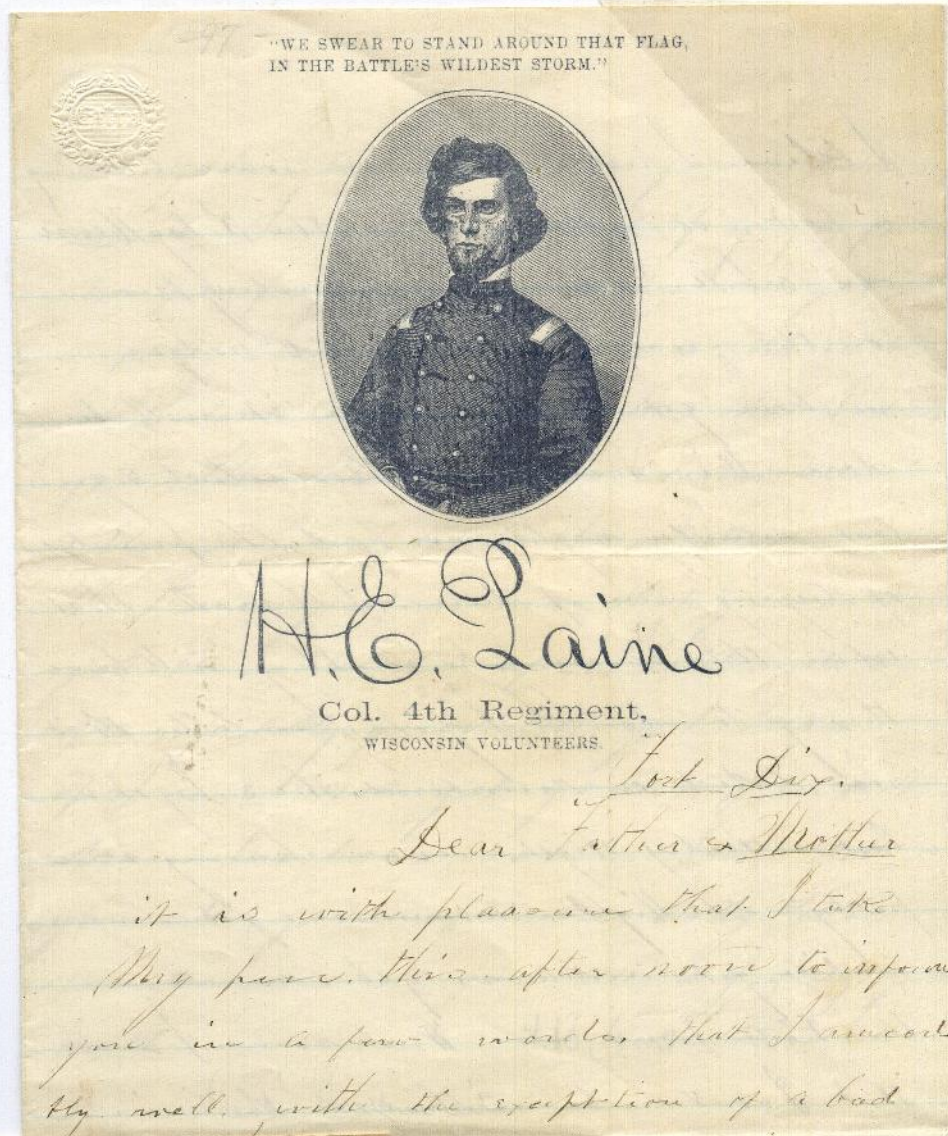 "WE SWEAR TO STAND AROUND THAT FLAG,
IN THE BATTLE'S WILDEST STORM."
H. E. Paine
Col. 4th Regiment,
WISCONSIN VOLUNTEERS.
Fort Dix.
Dear Father & Mother
it is with that I take
My pen. this after noon to inform
you in a few words. that I
tly well with the exception of a bad